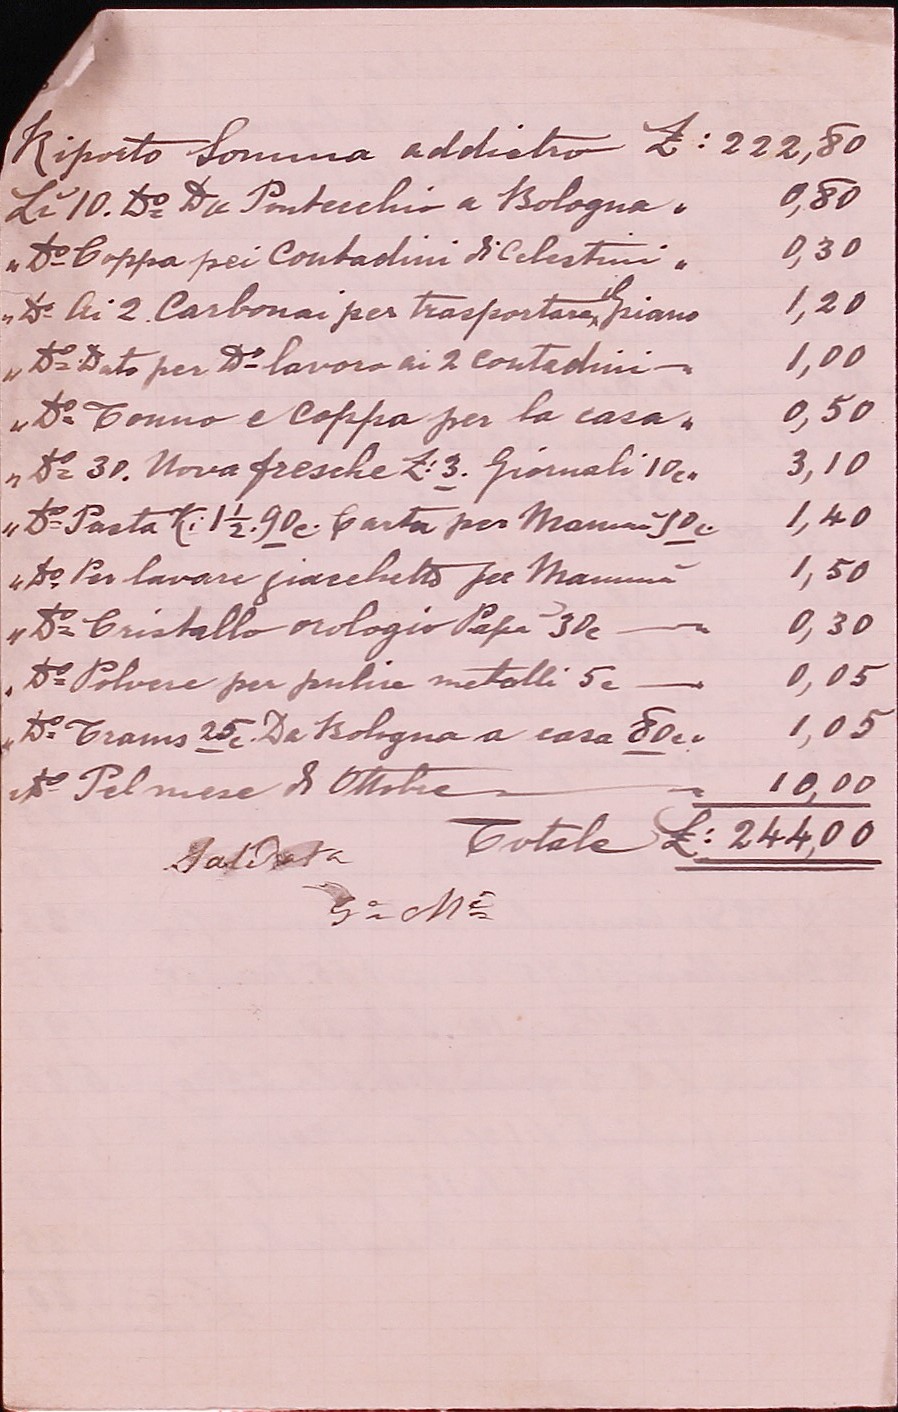 Riporto Somma addietro £: 222,80
Li 10. Do= Da Pontecchio a Bologna " 0,80
" Do= Coppa pei Contadini di Celestini " 0,30
" Do= Ai 2 Carbonai per trasportare il piano 1,20
" Do= Dato per Do= lavoro ai 2 contadini — " 1,00
" Do= Tonno e Coppa per la casa " 0,50
" Do= 30. Uova fresche £: 3. Giornali 10c " 3,10
" Do= Pasta K: 1½. 90c. Carta per Mammà 50c 1,40
" Do= Per lavare giacchetto per Mammà 1,50
" Do= Cristallo orologio Papà 30c — " 0,30
" Do= Polvere per pulire metalli 5c — " 0,05
" Do= Trams 25c. Da Bologna a casa 80c " 1,05
" Do= Pel mese di Ottobre — " 10,00
Totale £: 244,00
Saldata